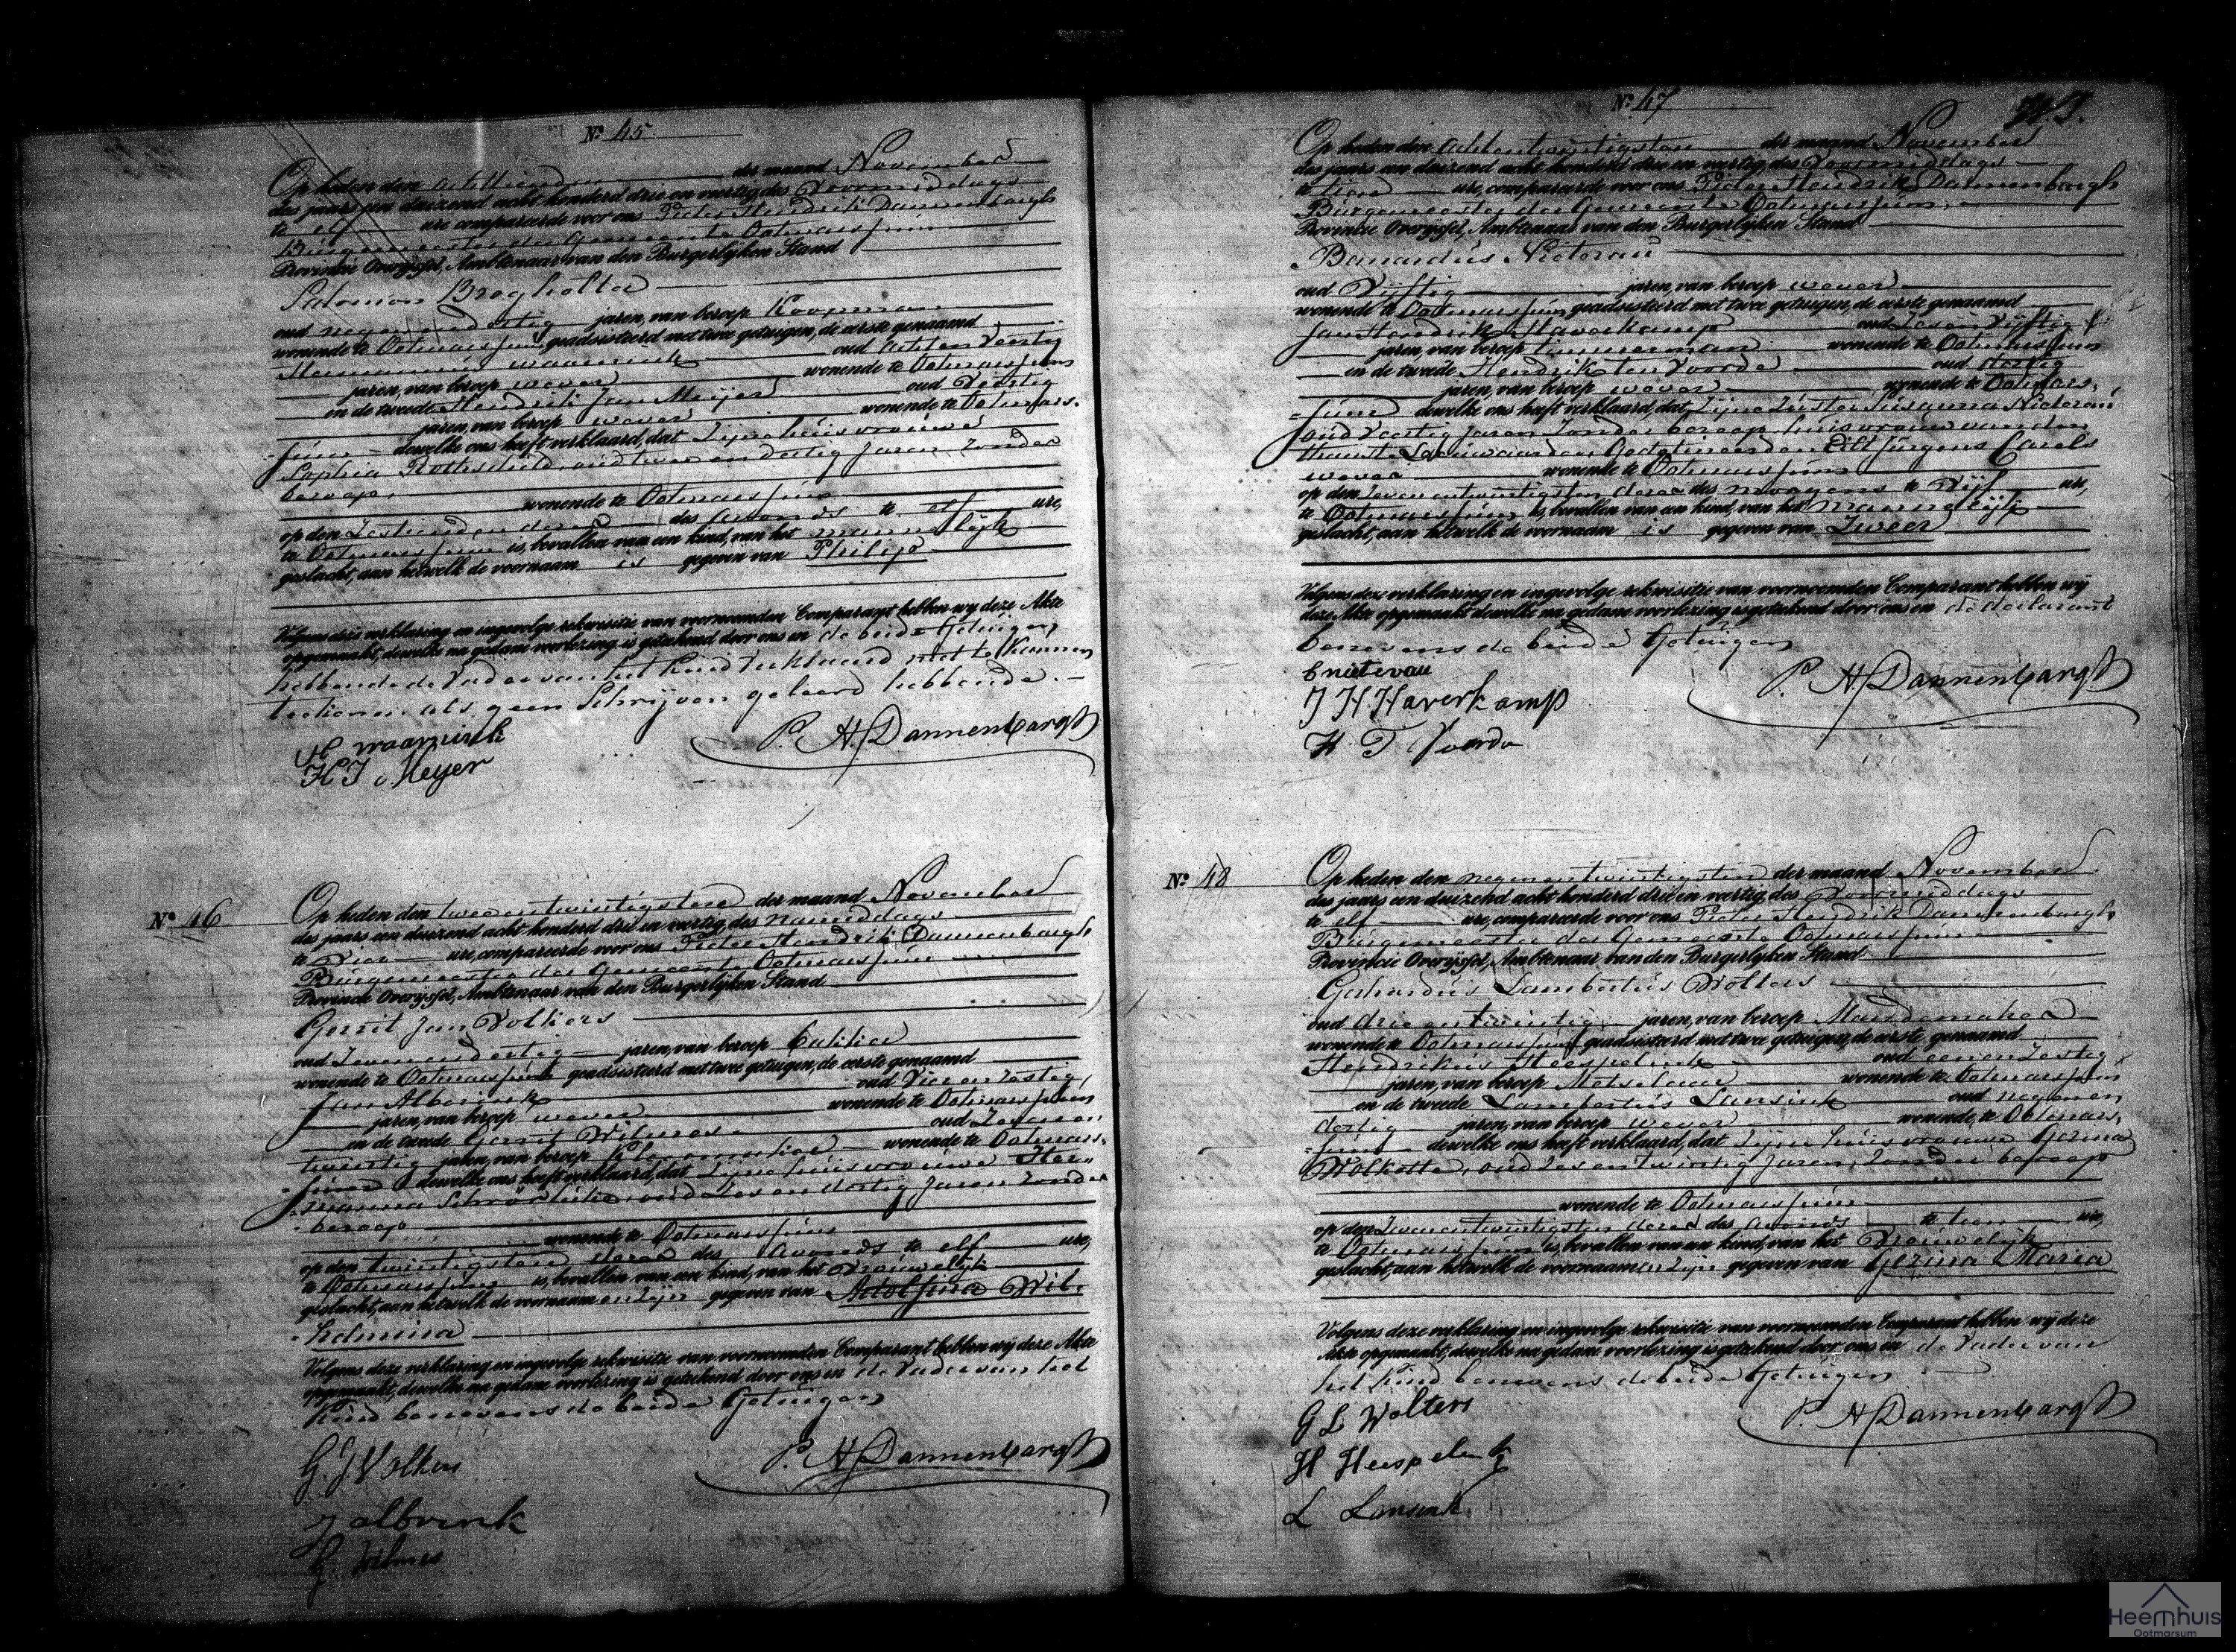 Nº 45
Op heden den achttienden der maand November
des jaars een duizend acht honderd drie en veertig, des Voormiddags
te elf ure compareerde voor ons Pieter Hendrik Dannenbargh
Burgemeester der Gemeente Ootmarssum
Provincie Overijssel, Ambtenaar van den Burgerlijken Stand
Salomon
oud negen en dertig jaren, van beroep Koopman
wonende te Ootmarssum geadsisteerd met twee getuigen, de eerste genaamd
Hermannus Waarnink oud acht en veertig
jaren, van beroep wever wonende te Ootmarssum
en de tweede Hendrik Jan Meijer oud Veertig
jaren, van beroep wever wonende te Ootmars-
sum dewelke ons heeft verklaard, dat Zijne huisvrouwe
Sophia Rothschild, oud twee en dertig Jaren Zonder
beroep, wonende te Ootmarssum
op den Zestienden dezer des avonds te elf ure,
te Ootmarssum is bevallen van een kind, van het mannelijk
geslacht, aan hetwelk de voornaam is gegeven van Philip
Volgens deze verklaring en ingevolge rekwisitie van voornoemden Comparant hebben wij deze Akte
opgemaakt, dewelke na gedane voorlezing is getekend door ons en de beide Getuigen,
hebbende de Vader van het Kind verklaard niet te Kunnen
teekenen als geen Schrijven geleerd hebbende.
H waarnink
P. H. Dannenbargh
H J Meyer
Nº 46
Op heden den twee en twintigsten der maand November
des jaars een duizend acht honderd drie en veertig, des namiddags
te Vier ure, compareerde voor ons Pieter Hendrik Dannenbargh
Burgemeester der Gemeente Ootmarssum
Provincie Overijssel, Ambtenaar van den Burgerlijken Stand
Gerrit Jan Volkers
oud Zeven en dertig jaren, van beroep
wonende te Ootmarssum geadsisteerd met twee getuigen, de eerste genaamd
Jan Alberink oud Vier en Zestig
jaren, van beroep wever wonende te Ootmarssum
en de tweede Gerrit Wilmes oud Zeven en
twintig jaren, van beroep wonende te Ootmars-
sum dewelke ons heeft verklaard, dat Zijne huisvrouwe Her-
manna oud Zes en dertig Jaren Zonder
beroep
wonende te Ootmarssum
op den twintigsten dezer des avonds te elf ure,
te Ootmarssum is bevallen van een kind, van het Vrouwelijk
geslacht, aan hetwelk de voornaamen zijn gegeven van Adolfina Wil-
helmina
Volgens deze verklaring en ingevolge rekwisitie van voornoemden Comparant hebben wij deze Akte
opgemaakt, dewelke na gedane voorlezing is getekend door ons en de Vader van het
Kind benevens de beide Getuigen
G. J Volkers
P. H. Dannenbargh
J albrink
G. Wilmes
Nº 47
Op heden den achtentwintigsten der maand November
des jaars een duizend acht honderd drie en veertig, des Voormiddags
te tien ure, compareerde voor ons Pieter Hendrik Dannenbargh
Burgemeester der Gemeente Ootmarssum,
Provincie Overijssel, Ambtenaar van den Burgerlijken Stand
Bernardus Nieterau
oud Vijftig jaren, van beroep wever
wonende te Ootmarssum geadsisteerd met twee getuigen, de eerste genaamd
Jan Hendrik Haverkamp oud Zes en Vijftig
jaren, van beroep timmerman wonende te Ootmarssum
en de tweede Hendrik ten Voorde oud dertig
jaren, van beroep wever wonende te Ootmars-
sum dewelke ons heeft verklaard, dat Zijne Zuster Susanna Nieterau
oud Veertig Jaren Zonder beroep huisvrouw van den
thans te Leeuwarden Gedetineerden Jurgens Carels
wever wonende te Ootmarssum
op den Zeven entwintigsten dezer des morgens te Vijf ure,
te Ootmarssum is bevallen van een kind, van het mannelijk
geslacht, aan hetwelk de voornaam is gegeven van Zweer
Volgens deze verklaring en ingevolge rekwisitie van voornoemden Comparant hebben wij
deze Akte opgemaakt dewelke na gedane voorlezing is getekend door ons en de declarant
benevens de beide Getuigen
B nieterau
P. H. Dannenbargh
J H Haverkamp
H. T. Voorde
Nº 48
Op heden den negen entwintigsten der maand November
des jaars een duizend acht honderd drie en veertig, des Voormiddags
te elf ure, compareerde voor ons Pieter Hendrik Dannenbargh
Burgemeester der Gemeente Ootmarssum
Provincie Overijssel, Ambtenaar van den Burgerlijken Stand
Gerhardus Lambertus Wolters
oud drie entwintig jaren, van beroep Mandemaker
wonende te Ootmarssum geadsisteerd met twee getuigen, de eerste genaamd
Hendrikus Heespelink oud eenen Zestig
jaren, van beroep Metselaar wonende te Ootmarssum
en de tweede Lambertus Lansink oud negen en
dertig jaren, van beroep wever wonende te Ootmars-
sum dewelke ons heeft verklaard, dat Zijne huisvrouwe Gezina
Wolkotte, oud Zes entwintig Jaren, Zonder beroep
wonende te Ootmarssum
op den Zeven entwintigsten dezer des avonds te tien ure,
te Ootmarssum is bevallen van een kind, van het Vrouwelijk
geslacht, aan hetwelk de voornaamen zijn gegeven van Gezina Maria
Volgens deze verklaring en ingevolge rekwisitie van voornoemden Comparant hebben wij deze
Akte opgemaakt, dewelke na gedane voorlezing is getekend door ons en de Vader van
het Kind benevens de beide Getuigen
G L Wolters
P. H. Dannenbargh
H Heespelink
L Lansink
Heemhuis
Ootmarsum